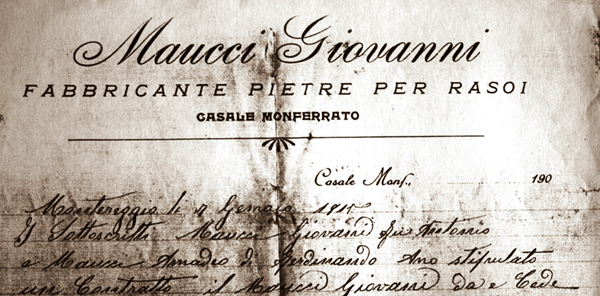 Maucci Giovanni
FABBRICANTE PIETRE PER RASOI
CASALE MONFERRATO
Casale Monf., 190
Montereggio li Gennaio
I Sottoscritti Maucci Giovani fu Antonio
e Maucci Amadio di Ferdinando Ano stipulato
un Contratto il Maucci Giovani da e Cede